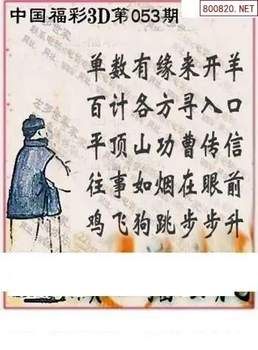 800820.NET
中国福彩3D第053期
单数有缘来开羊
百计各方寻入口
平顶山功曹传信
往事如烟在眼前
鸡飞狗跳步步升